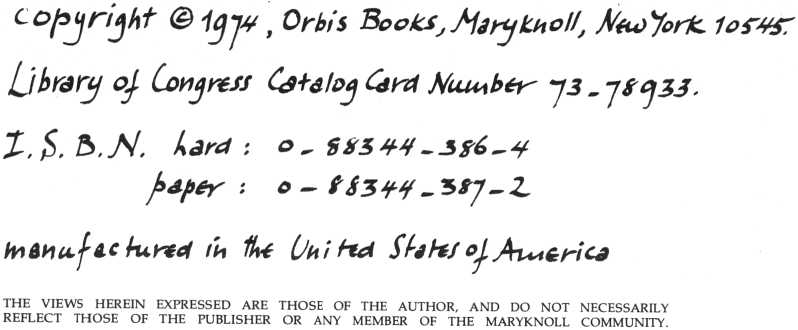 Copyright © 1974, Orbis Books, Maryknoll, New York 10545.
Library of Congress Catalog Card Number 73-78933.
I.S.B.N. hard: 0-88344-386-4
paper: 0-88344-387-2
manufactured in the United States of America
THE VIEWS HEREIN EXPRESSED ARE THOSE OF THE AUTHOR, AND DO NOT NECESSARILY
REFLECT THOSE OF THE PUBLISHER OR ANY MEMBER OF THE MARYKNOLL COMMUNITY.